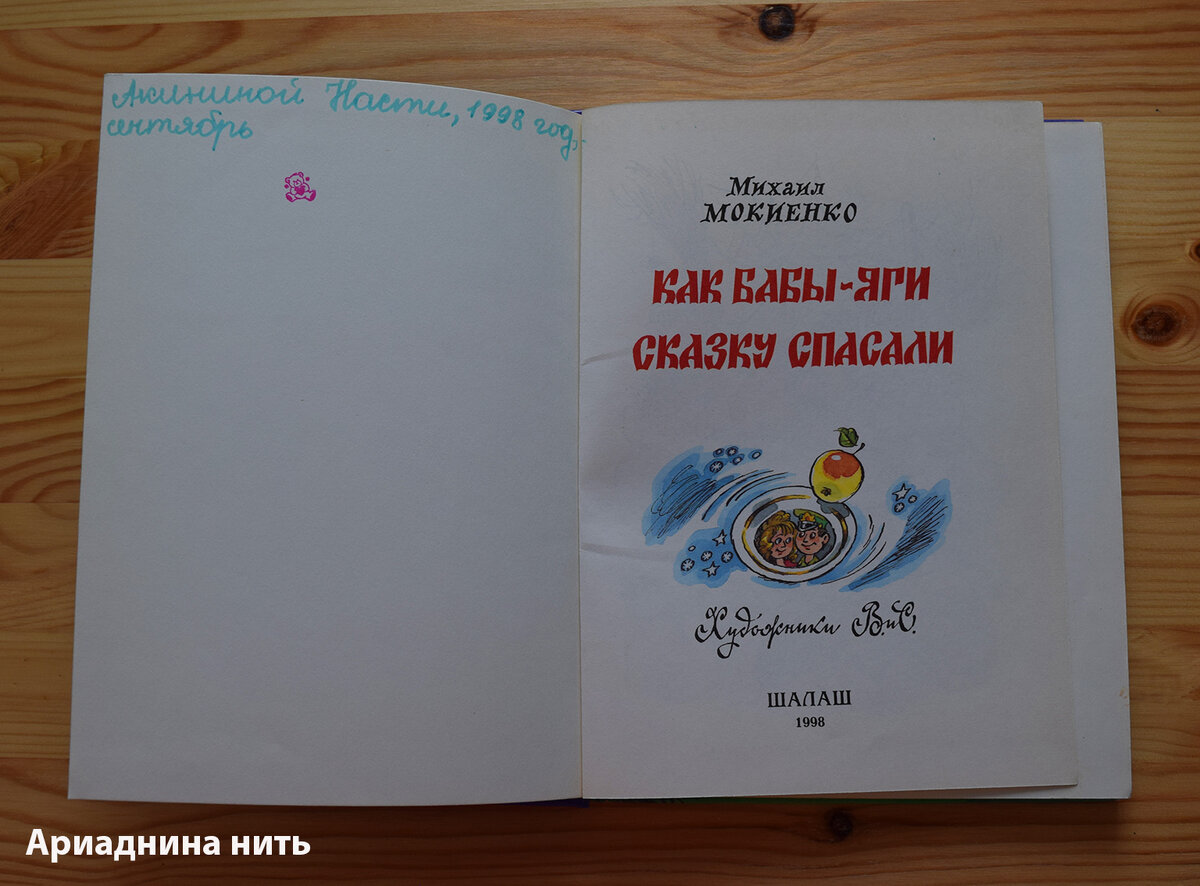 Акининой Насти, 1998 год,
сентябрь
Михаил
МОКИЕНКО
КАК БАБЫ-ЯГИ
СКАЗКУ СПАСАЛИ
Художники В.иС.
ШАЛАШ
1998
Ариаднина нить